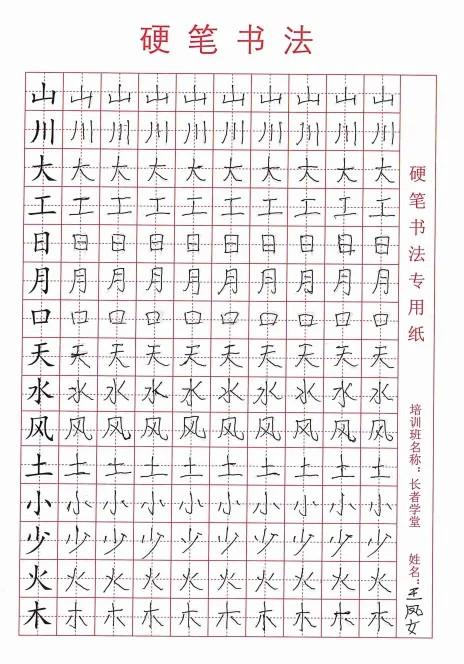 硬笔书法
山山山山山山山山山山
川川川川川川川川川川
大大大大大大大大大大
工工工工工工工工工工
日日日日日日日日日日
月月月月月月月月月月
口口口口口口口口口口
天天天天天天天天天天
水水水水水水水水水水
风风风风风风风风风风
土土土土土土土土土土
小小小小小小小小小小
少少少少少少少少少少
火火火火火火火火火火
木木木木木木木木木木
硬笔书法专用纸
培训班名称：长者学堂 姓名：王凤女